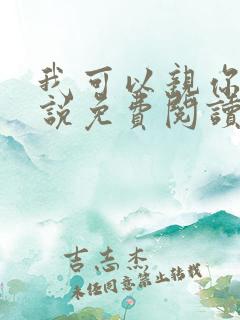 我可以親你
說免費閱讀
吉志杰
未经同意禁止转载